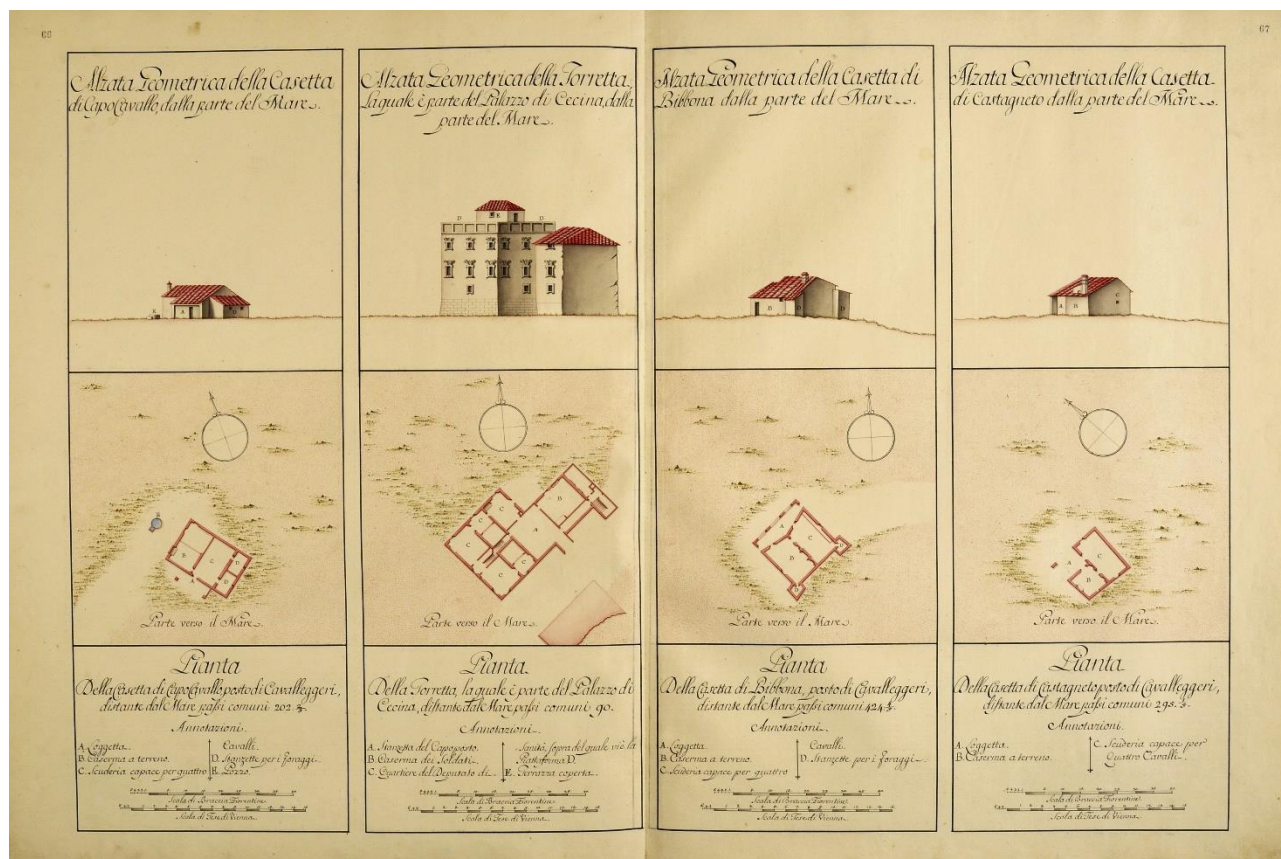 66
67
Alzata Geometrica della Casetta
di CapoCavallo, dalla parte del Mare.
A
D
Parte verso il Mare.
Pianta
Della Casetta di CapoCavallo posto di Cavalleggeri,
distante dal Mare passi comuni 202
Annotazioni.
A. Loggetta.
B. Caserma a terreno.
C. Scuderia capace per quattro
Cavalli.
D. Stanzette per i foraggi
E. Pozzo.
Scala di Braccia Fiorentine
Scala di Tese di Vienna
Alzata Geometrica della Torretta,
la quale è parte del Palazzo di Cecina, dalla
parte del Mare.
D E D
B
A
C
C
C
C
C
Parte verso il Mare.
Pianta
Della Torretta, la quale è parte del Palazzo di
Cecina, distante dal Mare passi comuni 90.
Annotazioni.
A. Stanzetta del Capoposto.
B. Caserma dei Soldati.
C. Quartiere del Deputato di
Sanità, sopra del quale vi è la
Piattaforma D.
E. Terrazza coperta.
Scala di Braccia Fiorentine
Scala di Tese di Vienna
Alzata Geometrica della Casetta di
Bibbona dalla parte del Mare.
B D D
A
C
B
Parte verso il Mare.
Pianta
Della Casetta di Bibbona, posto di Cavalleggeri,
distante dal Mare passi comuni 424
Annotazioni.
A. Loggetta
B. Caserma a terreno.
C. Scuderia capace per quattro
Cavalli.
D. Stanzette per i foraggi.
Scala di Braccia Fiorentine
Scala di Tese di Vienna
Alzata Geometrica della Casetta
di Castagneto dalla parte del Mare.
A B C
A
C
B
Parte verso il Mare.
Pianta
Della Casetta di Castagneto posto di Cavalleggeri,
distante dal Mare passi comuni 295.
Annotazioni.
A. Loggetta.
B. Caserma a terreno.
C. Scuderia capace per
Quattro Cavalli.
Scala di Braccia Fiorentine
Scala di Tese di Vienna